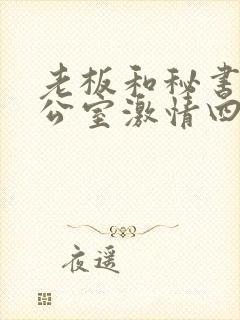 老板和秘书
公室激情四
夜遥